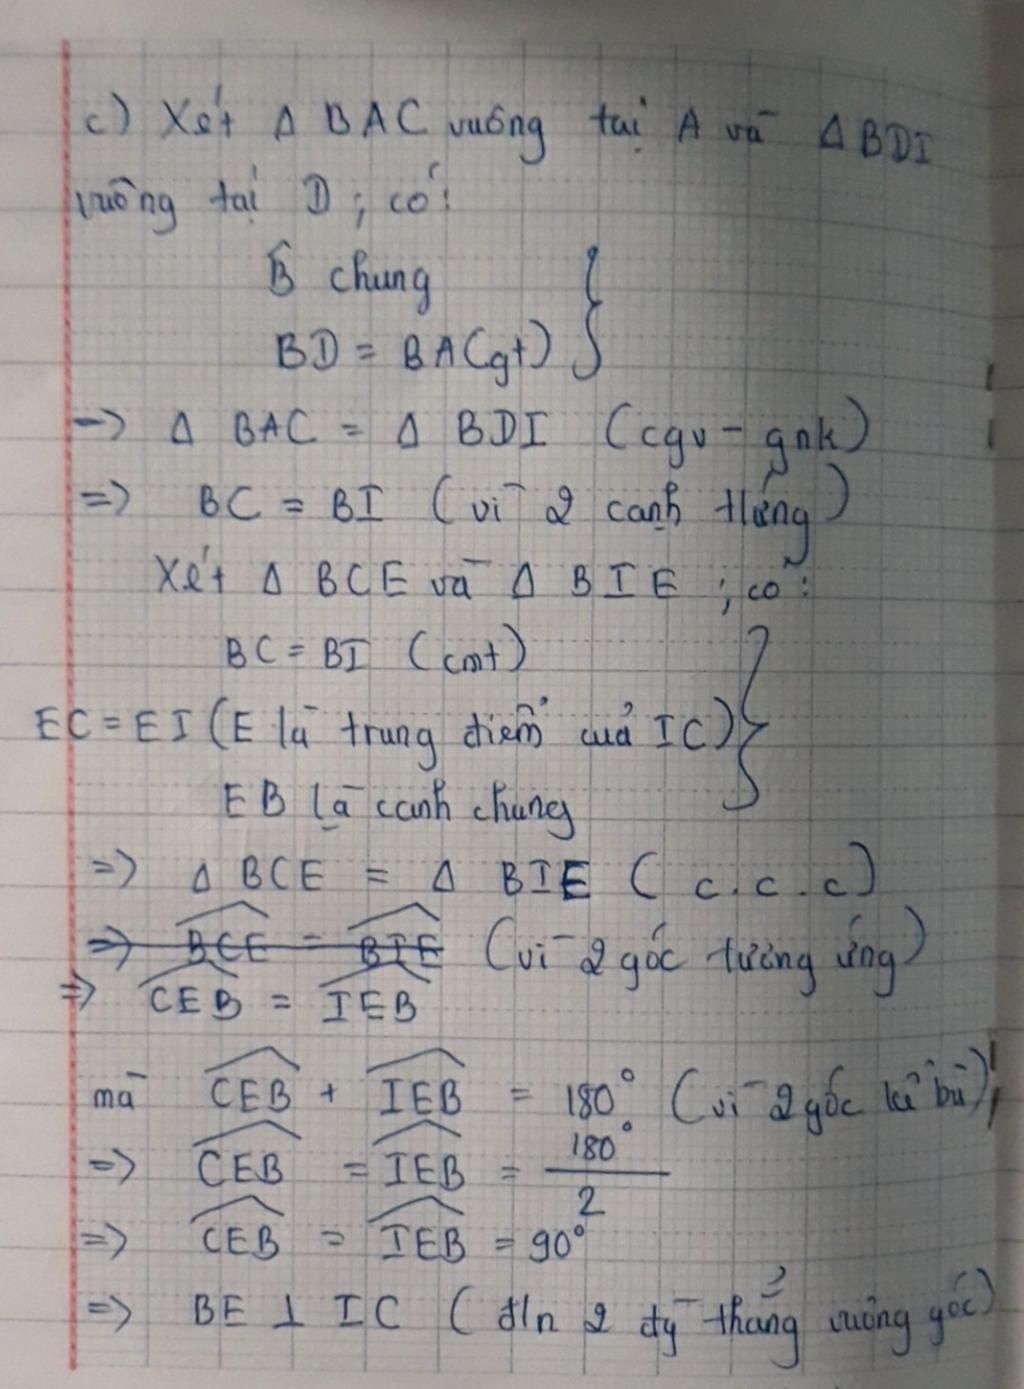 c) Xét Δ BAC vuông tại A và Δ BDI
vuông tại D ; có:
B̂ chung
BD = BA (gt)
=> Δ BAC = Δ BDI (cgv - gnk)
=> BC = BI (vì 2 cạnh tứng)
Xét Δ BCE và Δ BIE ; có:
BC = BI (cmt)
EC = EI (E là trung điểm của IC)
EB là cạnh chung
=> Δ BCE = Δ BIE ( c.c.c )
=> BCE = BIE (vì 2 góc tương ứng)
=> CEB = IEB
mà CEB + IEB = 180° (vì 2 góc kề bù)
=> CEB = IEB = 180° / 2
=> CEB = IEB = 90°
=> BE ⊥ IC ( đ/n 2 đg thẳng vuông góc)